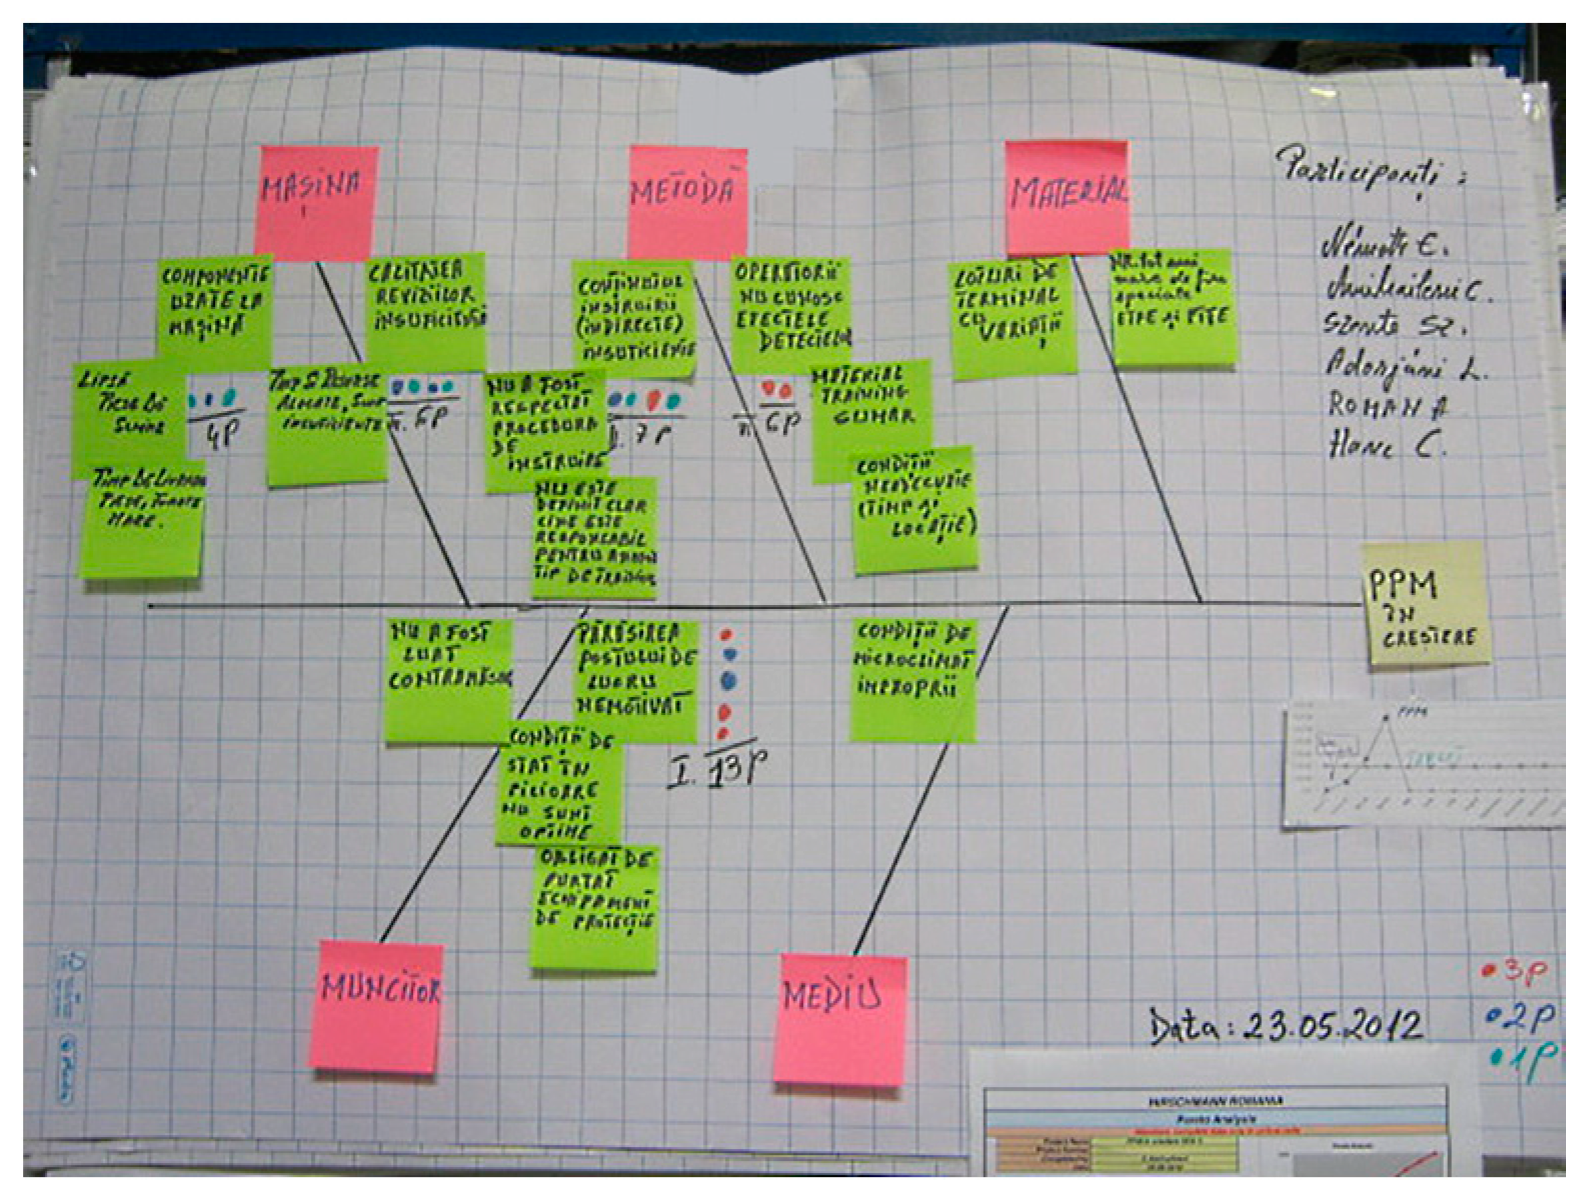 MAȘINA
METODĂ
MATERIAL
Participanți:
COMPONENTE
UZATE LA
MAȘINĂ
CALITATEA
REVIZIILOR
INSUFICIENTĂ
CONȚINUTUL
INSTRUIRII
(INDIRECTE)
INSUFICIENTE
OPERATORII
NU CUNOSC
EFECTELE
DEFECTELOR
LOTURI DE
TERMINAL
CU
VARIAȚII
speciale
ETPE ȘI FTFE
Németh E.
Szente Sz.
Adorjáni L.
ROMAN A
Hanc C.
LIPSĂ
PIESE DE
4P
TIMP ȘI RESURSE
ALOCATE, SUNT
INSUFICIENTE
NU A FOST
RESPECTAT
PROCEDURA
DE
INSTRUIRE
II. 7P
6P
MATERIAL
TRAINING
SUMAR
TIMP DE LIVRARE
PIESE, FOARTE
MARE.
NU ESTE
DEFINIT CLAR
CINE ESTE
RESPONSABIL
PENTRU
TIP DE TRAINING
CONDIȚII
NEADECVATE
(TIMP ȘI
LOCAȚIE)
PPM
ÎN
CREȘTERE
NU A FOST
LUAT
CONTRAMĂSURI
PĂRĂSIREA
POSTULUI DE
LUCRU
NEMOTIVAT
I. 13P
CONDIȚII DE
MICROCLIMAT
IMPROPRII
PPM
TARGET
CONDIȚII DE
STAT ÎN
PICIOARE
NU SUNT
OPTIME
OBLIGAT DE
PURTAT
ECHIPAMENT
DE PROTECȚIE
MUNCITOR
MEDIU
Data: 23.05.2012
3P
2P
1P
HIRSCHMANN ROMANIA
Pareto Analysis